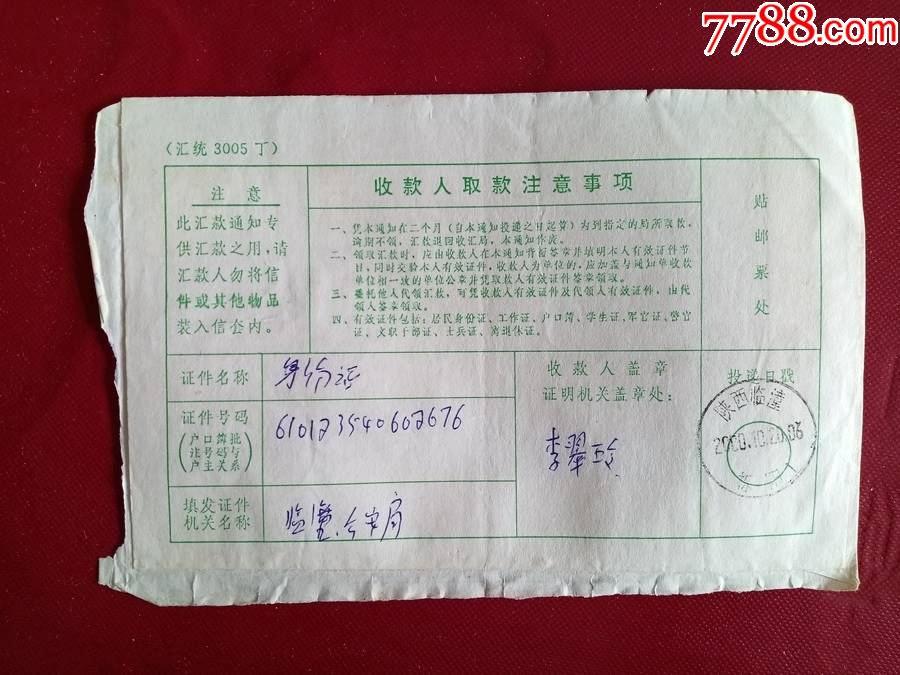 7788.com
(汇统 3005 丁)
注 意
此汇款通知专
供汇款之用,请
汇款人勿将信
件或其他物品
装入信套内。
收款人取款注意事项
一、凭本通知在二个月(自本通知投递之日起算)为到指定的局所取款,
逾期不领,汇款退回收汇局,本通知作废。
二、领取汇款时,应由收款人在本通知背面签章并填明本人有效证件节
目,同时交验本人有效证件,收款人为单位的,应加盖与通知单收款
单位相一致的单位公章并凭取款人有效证件签章领取。
三、委托他人代领汇款,可凭收款人有效证件及代领人有效证件,由代
领人签章领取。
四、有效证件包括:居民身份证、工作证、户口簿、学生证、军官证、警官
证、文职干部证、士兵证、离退休证。
贴
邮
票
处
证件名称
身份证
证件号码
(户口簿批
准号码与
户主关系)
610123540602676
填发证件
机关名称
临潼公安局
收款人盖章
证明机关盖章处:
李翠玲
投递日戳
陕西临潼
2000.10.20.06